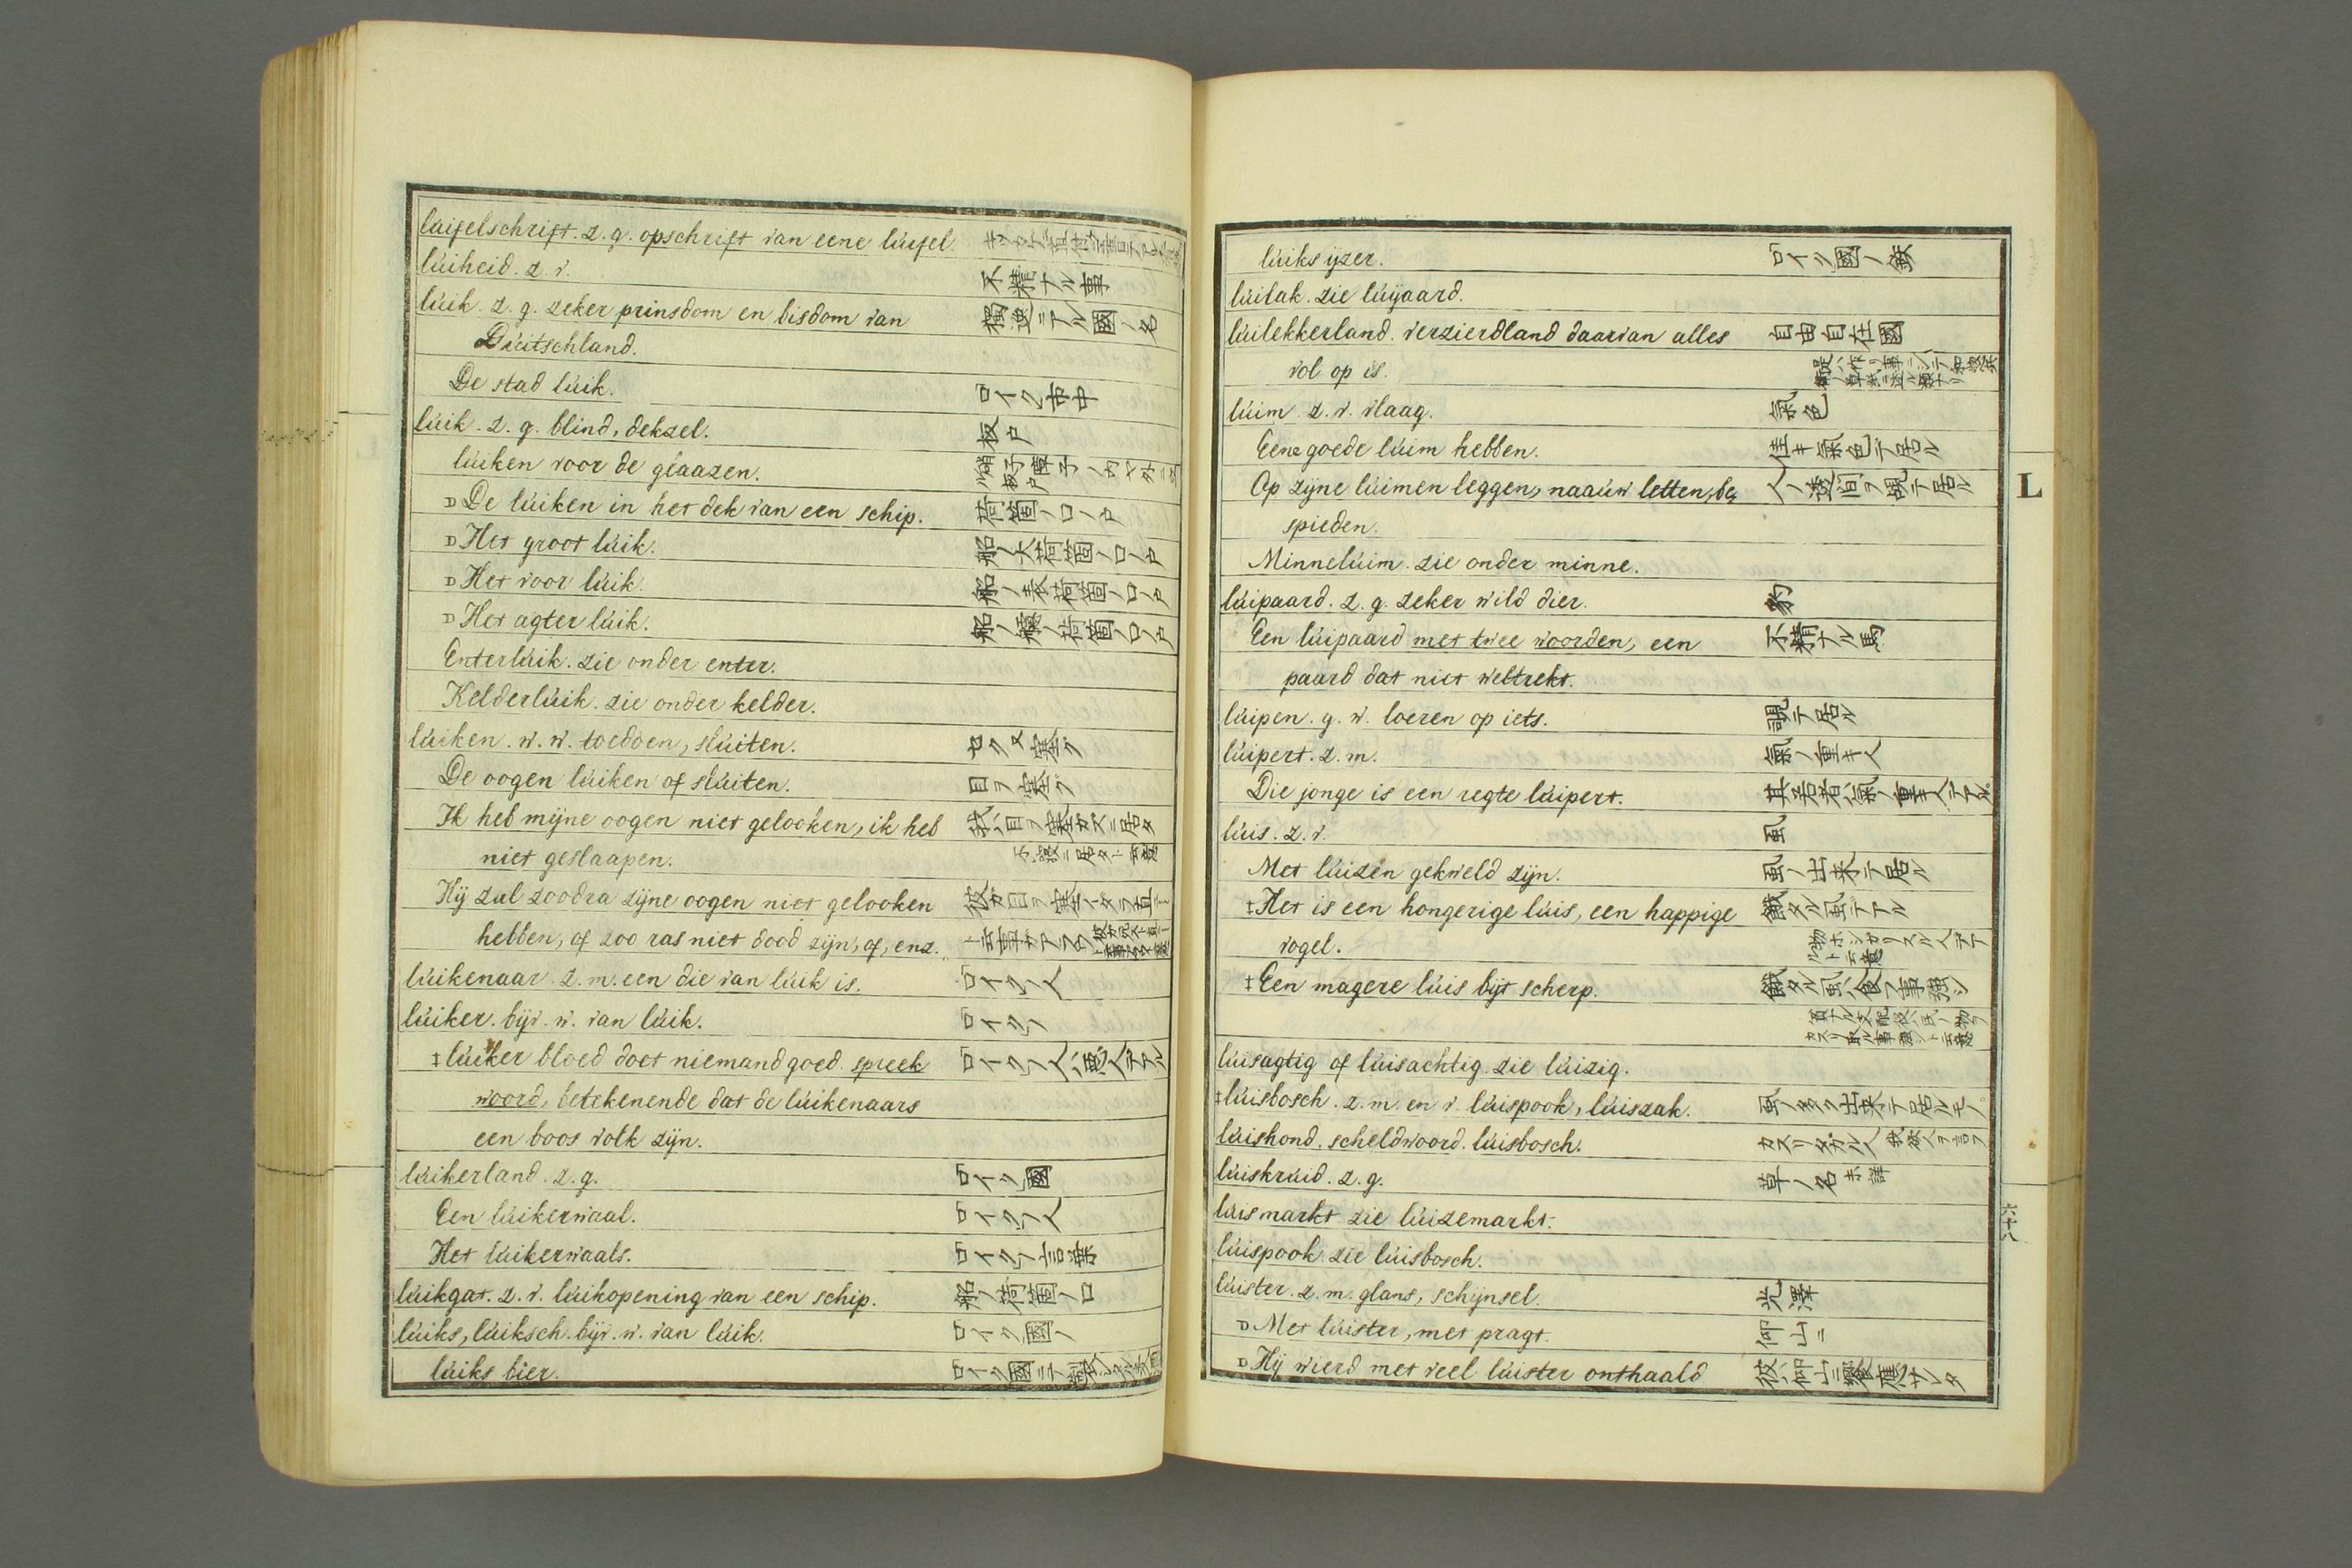 luifelschrift. z. g. opschrift van eene luifel.
lúiheid. z. v. 不精ナル事
lúik. z. g. zeker prinsdom en bisdom van 獨逸ニアル國ノ名
Dúitschland.
De stad lúik. ロイク市中
lúik. z. g. blind, dekzel. 板戸
lúiken voor de glaazen. 硝子障子ノ
De lúiken in het dek van een schip. 荷箇ノ口ノ戸
D Het groot lúik. 船ノ大荷箇ノ口ノ戸
D Het voor lúik. 船ノ表荷箇ノ口ノ戸
D Het agter lúik. 船ノ艫ノ荷箇ノ口ノ戸
Enterlúik. zie onder enter.
Kelderlúik. zie onder kelder.
lúiken. w. w. toedoen, slúiten. 塞グ
De oogen lúiken of slúiten. 目ヲ塞グ
Ik heb mijne oogen niet gelooken, ik heb 我ハ目ヲ塞ガズニ居タ
niet geslaapen. 不寝ニ居タト云意
Hij zal zoodra zijne oogen niet gelooken 彼ガ目ヲ塞イタラ直ニ
hebben, of zoo ras niet dood zijn, of, enz. ト云事ガアラウ
lúikenaar. z. m. een die van lúik is. ロイクノ人
lúiker. bijv. w. van lúik. ロイクノ
‡ lúiker bloed doet niemand goed. spreek ロイクノ人ハ悪人デアル
woord, betekenende dat de lúikenaars
een boos volk zijn.
lúikerland. z. g. ロイク國
Een lúikerwaal. ロイクノ人
Het lúikerwaals. ロイクノ言葉
lúikgat. z. v. lúikopening van een schip. 船ノ荷箇ノ口
lúiks, lúiksch. bijv. w. van lúik. ロイク國ノ
lúiks bier. ロイク國ニテ製シタル
lúiks ijzer. ロイク國ノ鉄
lúilak. zie lúijaard.
lúilekkerland. verzierdland daarvan alles 自由自在國
vol op is.
lúim. z. v. vlaag. 氣色
Eene goede lúim hebben. 佳キ氣色デ居ル
Op zijne lúimen leggen, naaúw letten, be, 人ノ透間ヲ覗テ居ル
spieden.
Minnelúim. zie onder minne.
lúipaard. z. g. zeker wild dier. 豹
Een lúipaard met twee woorden, een 不精ナル馬
paard dat niet wel trekt.
lúipen. g. w. loeren op iets. 覗テ居ル
lúipert. z. m. 氣ノ重キ人
Die jonge is een regte lúipert. 其若者ハ氣ノ重キ人デアル
lúis. z. v. 虱
Met lúizen gekweld zijn. 虱ノ出来テ居ル
‡ Het is een hongerige lúis, een happige 餓タル虱デアル
vogel. 物ホシガリスル人デアルト云意
‡ Een magere lúis bijt scherp. 餓タル虱ハ食フ事強シ
lúisagtig of lúisachtig. zie lúizig.
‡ lúisbosch. z. m. en v. lúispook, lúiszak. 虱ノ多ク出来テ居ルモノ
lúishond. scheldwoord. lúisbosch.
lúiskrúid. z. g. 草ノ名 未詳
lúismarkt. zie lúizemarkt.
lúispook. zie lúisbosch.
lúister. z. m. glans, schijnsel. 光澤
D Met lúister, met pragt. 仰山ニ
D Hij wierd met veel lúister onthaald 彼ハ仰山ニ饗應サレタ
L
六十八